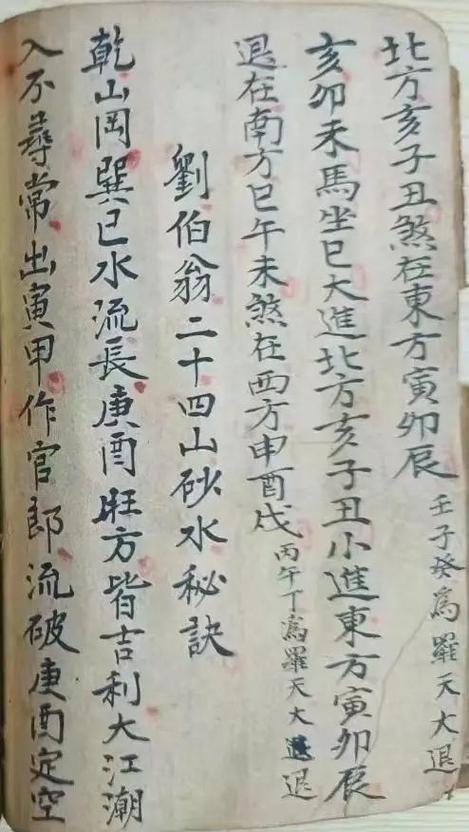 北方亥子丑煞在東方寅卯辰壬子癸為羅天大退
亥卯未馬坐巳大進北方亥子丑小進東方寅卯辰
退在南方巳午未煞在西方申酉戌丙午丁為羅天大退
劉伯翁二十四山砂水秘訣
乾山岡巽巳水流長庚酉旺方皆吉利大江潮
入不尋常出寅甲作官郎流破庚酉定空